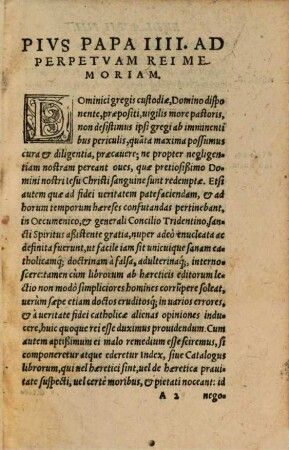 PIVS PAPA IIII. AD
PERPETVAM REI ME-
MORIAM.
DOminici gregis custodiæ, Domino dispo
nente, præpositi, uigilis more pastoris,
non desistimus ipsi gregi ab imminenti
bus periculis, quàta maxima possumus
cura & diligentia, præcauere; ne propter negligen
tiam nostram pereant oues, quæ pretiosißimo Do
mini nostri Iesu Christi sanguine sunt redemptæ. Etsi
autem quæ ad fidei ueritatem patefaciendam, &
ad horum temporum hæreses confutandas pertinebant,
in Oecumenico, & generali Concilio Tridentino, san-
cti Spiritus aßistente gratia, nuper adeò enucleata ac
definita fuerunt, ut facile iam sit unicuique sanam ca-
tholicamq; doctrinam à falsa, adulterinaq;, interno-
scere: tamen cùm librorum ab hæreticis editorum lectio
non modò simpliciores homines corrũpere soleat,
verùm sæpe etiam doctos eruditosq; in uarios errores,
& à ueritate fidei catholicæ alienas opiniones indu-
cere, huic quoque rei esse duximus prouidendum. Cum
autem aptißimum ei malo remedium esse sciremus, si
componeretur atque ederetur Index, siue Catalogus
librorum, qui uel hæretici sint, uel de hæretica praui-
tate suspecti, uel certè moribus, & pietati noceant: id
A 2 nego-